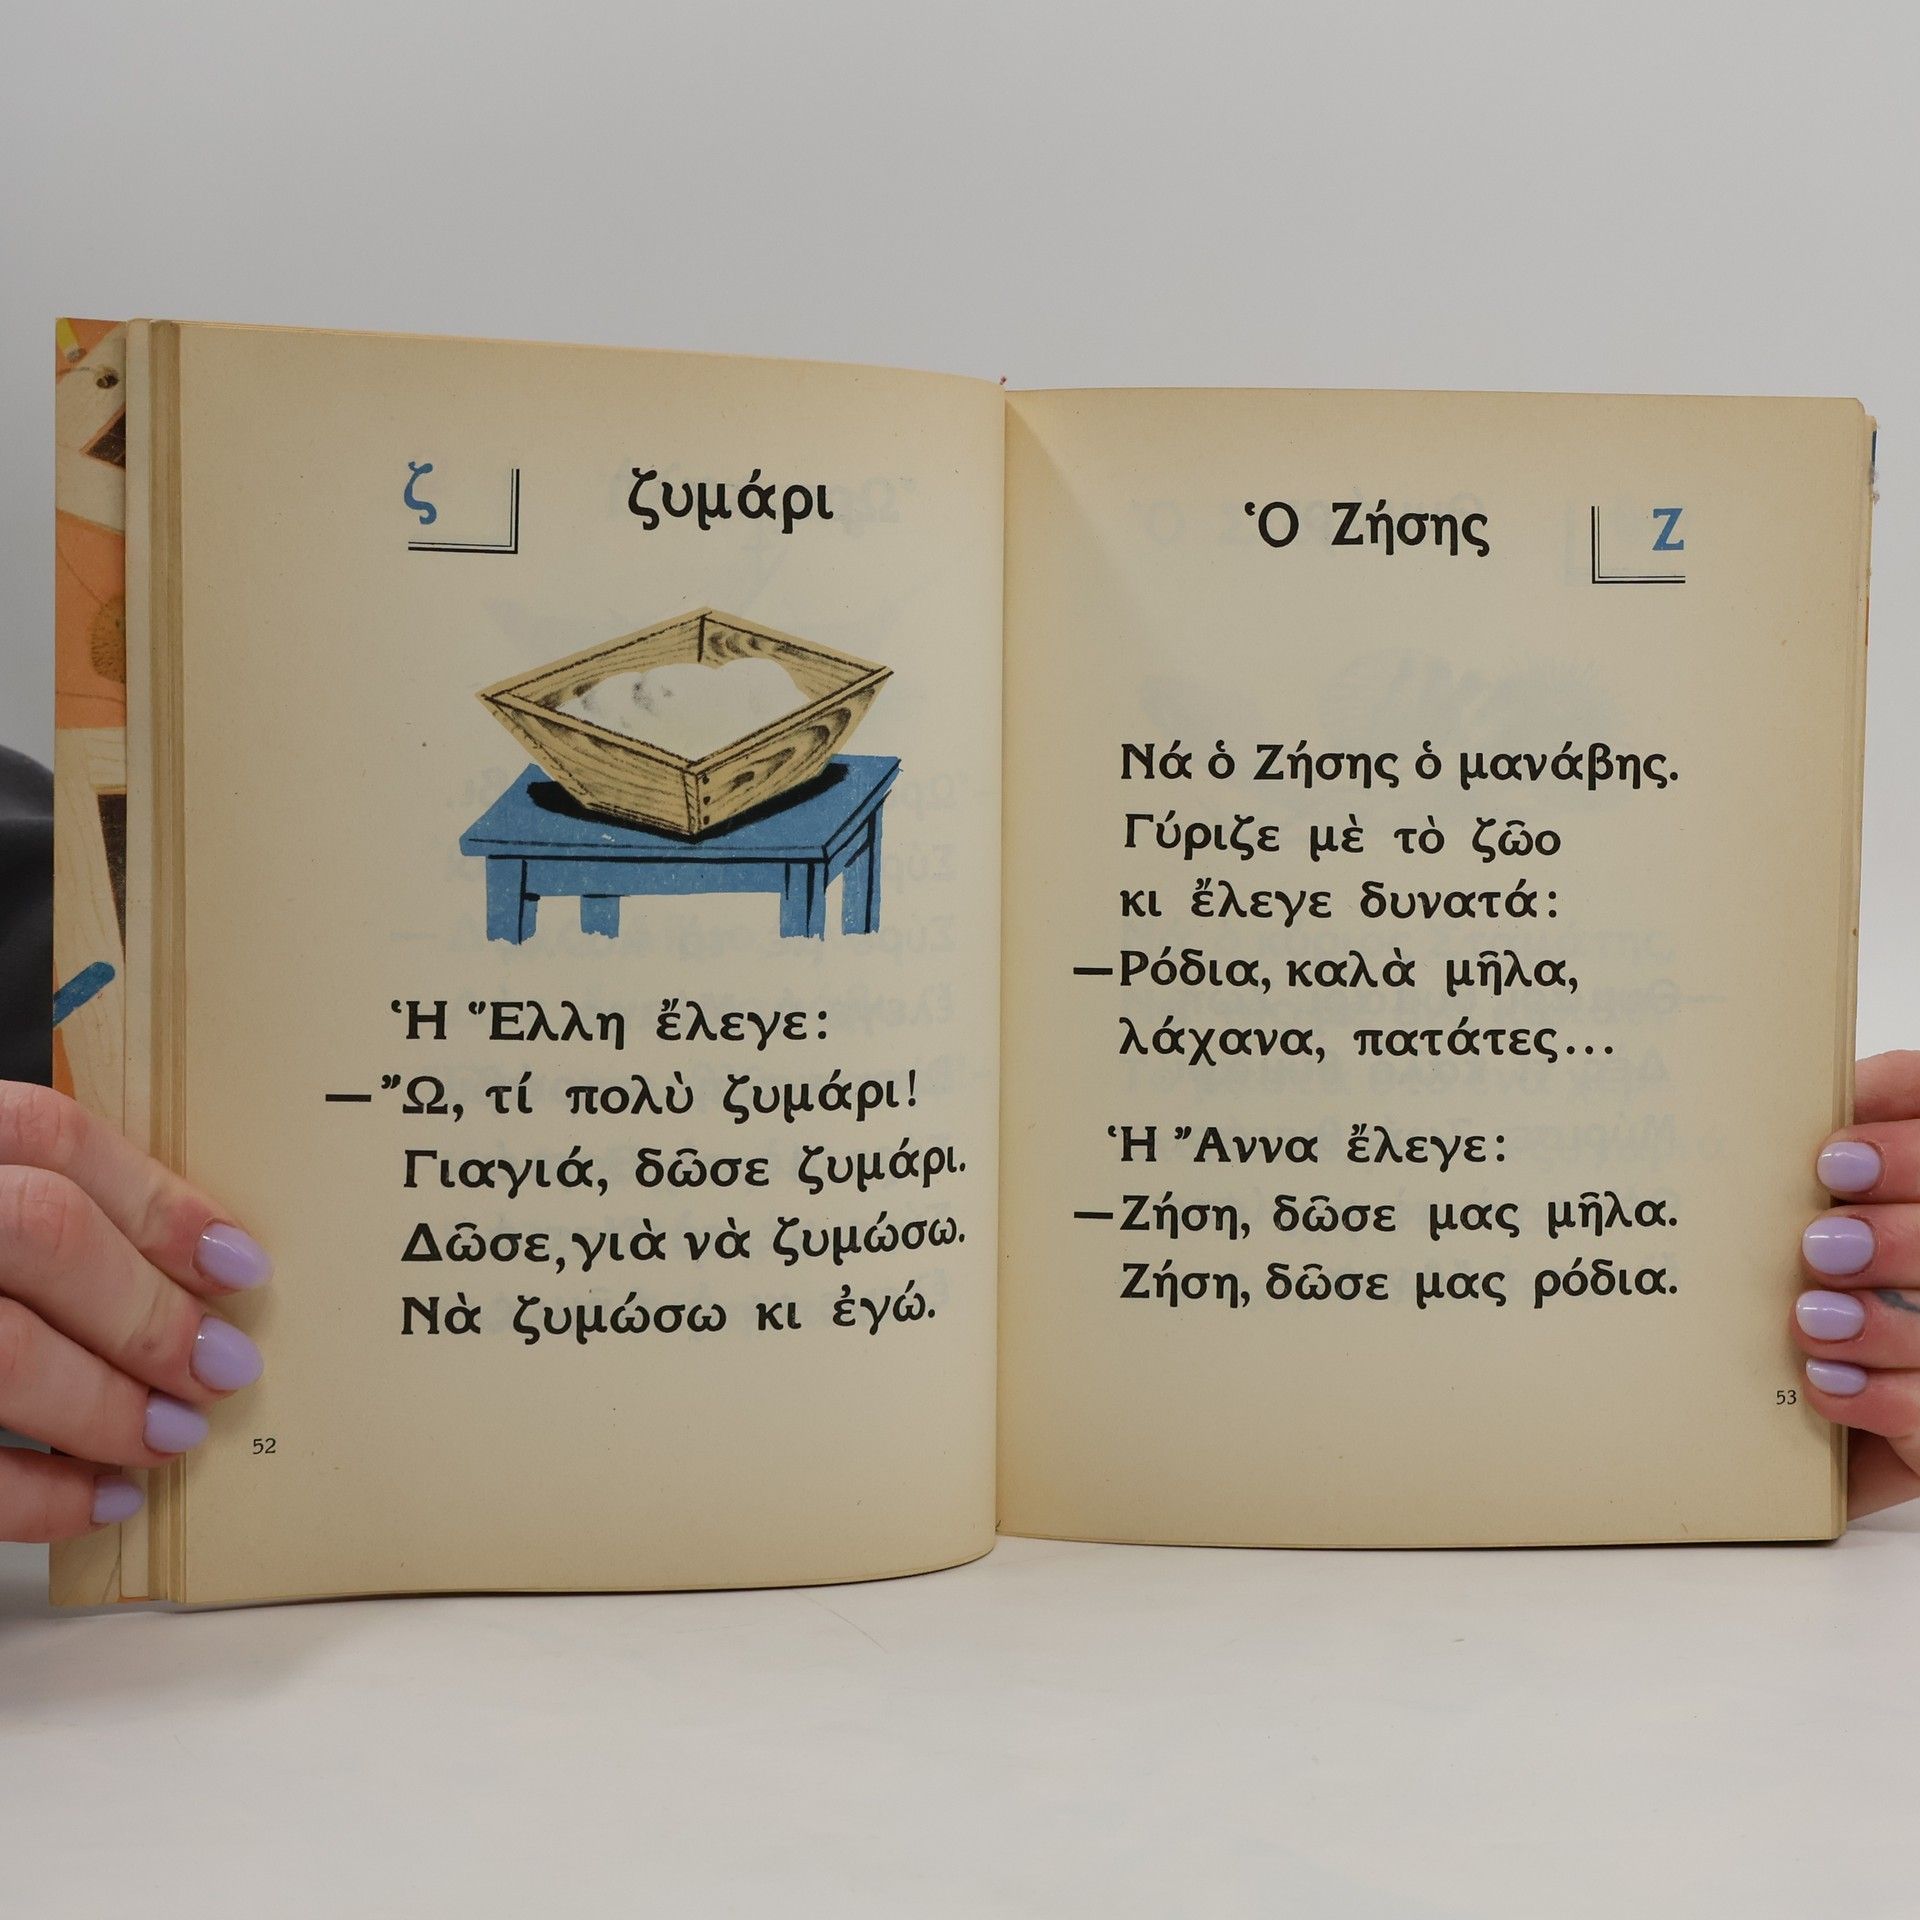 ζ
ζυμάρι
Ἡ Ἕλλη ἔλεγε:
—Ὦ, τί πολὺ ζυμάρι!
Γιαγιά, δῶσε ζυμάρι.
Δῶσε, γιὰ νὰ ζυμώσω.
Νὰ ζυμώσω κι ἐγώ.
52
Ὁ Ζήσης
Ζ
Νά ὁ Ζήσης ὁ μανάβης.
Γύριζε μὲ τὸ ζῶο
κι ἔλεγε δυνατά:
—Ρόδια, καλὰ μῆλα,
λάχανα, πατάτες...
Ἡ Ἄννα ἔλεγε:
—Ζήση, δῶσε μας μῆλα.
Ζήση, δῶσε μας ρόδια.
53